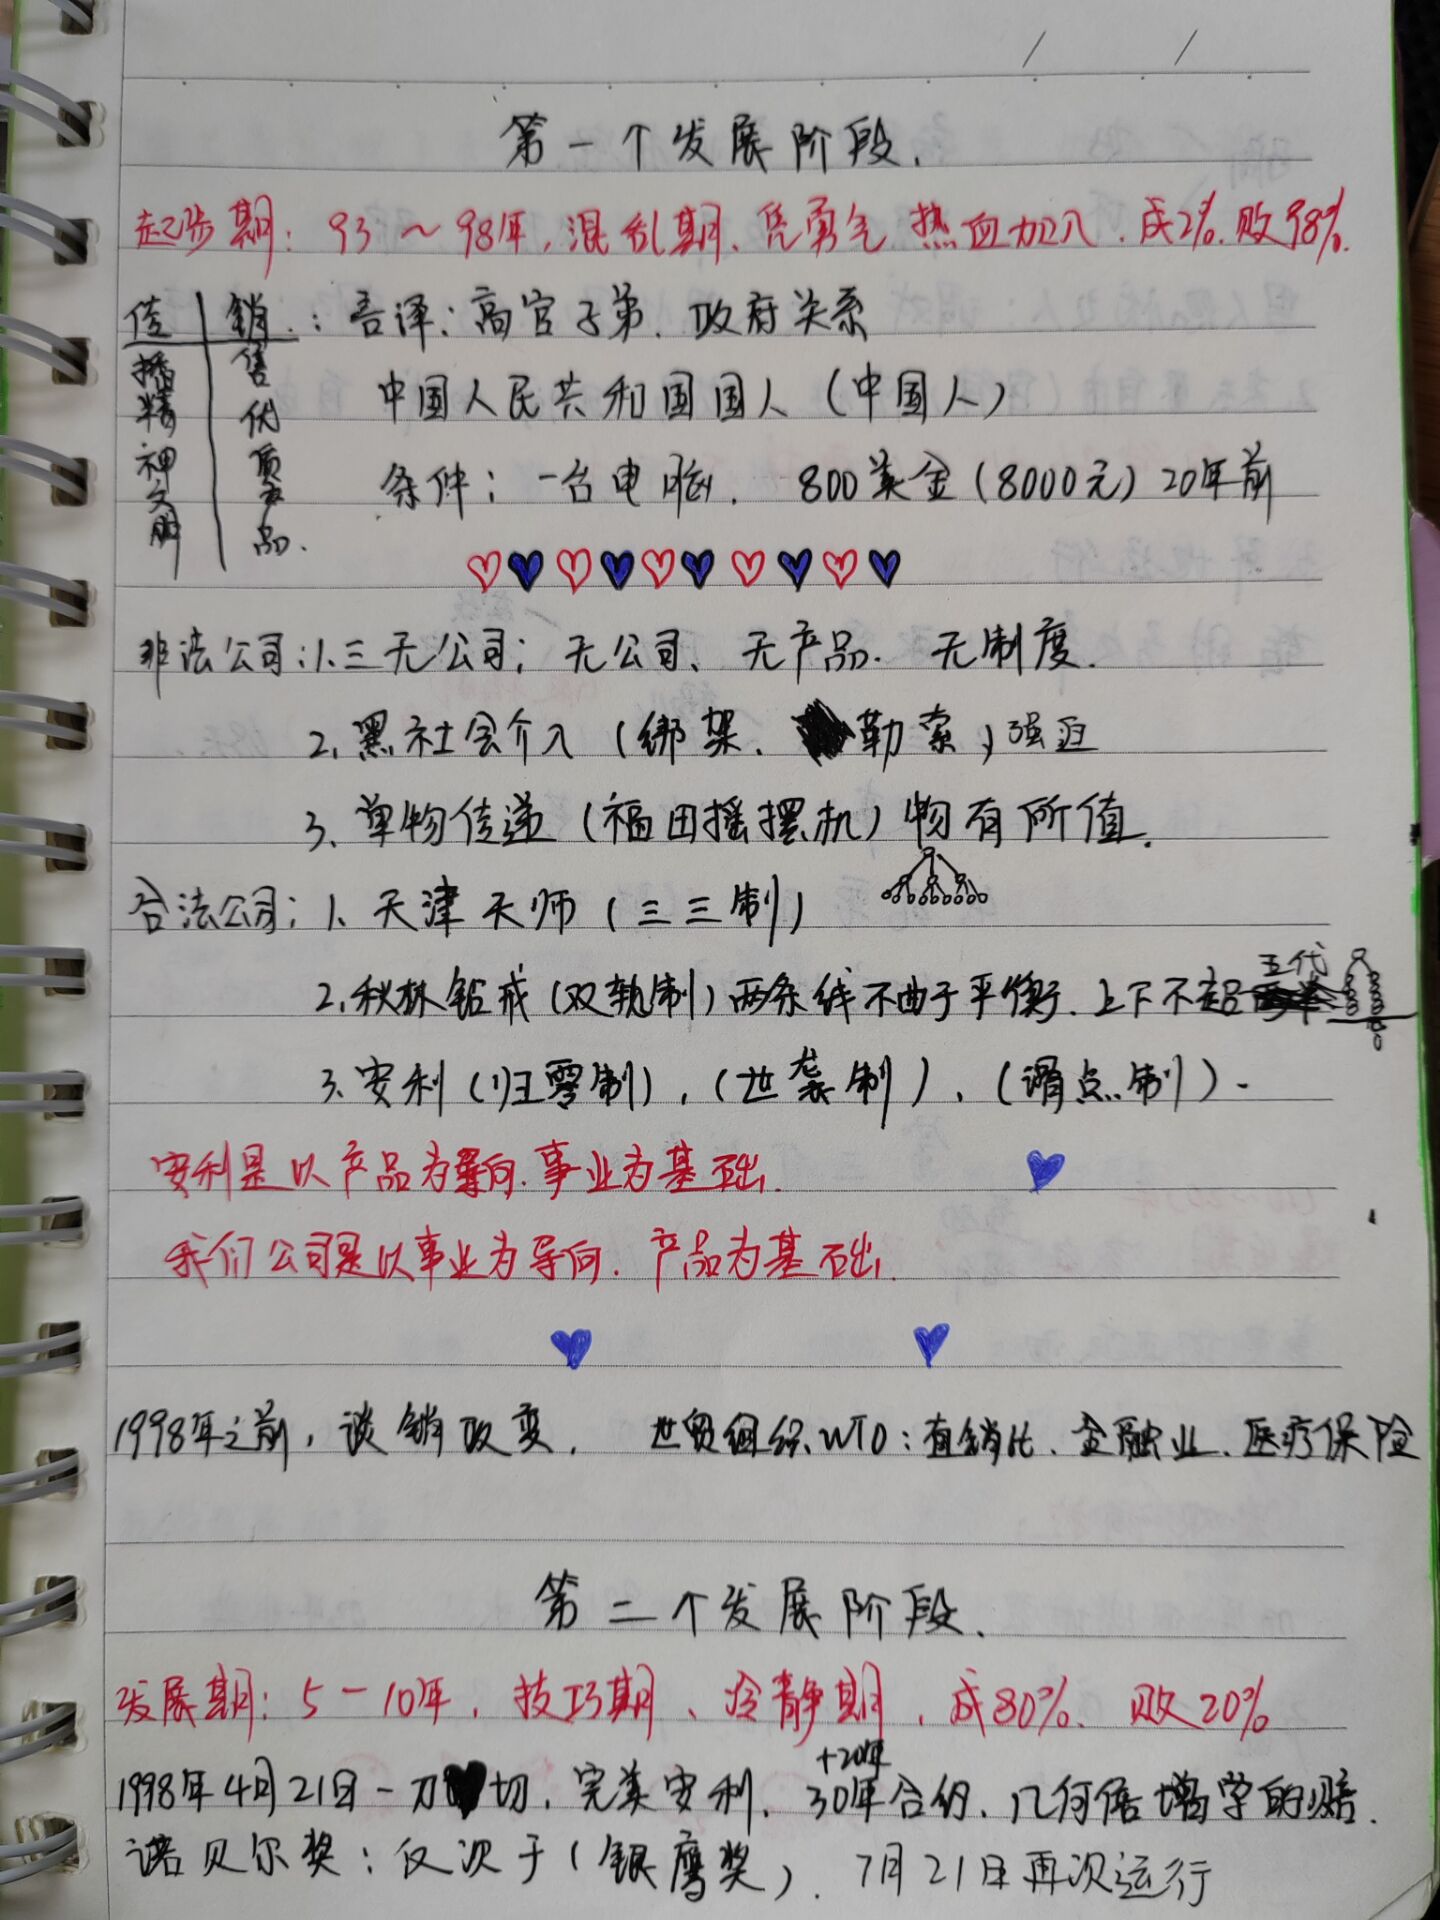 第一个发展阶段.
起步期: 93～98年, 混乱期、凭勇气 热血加入. 成2%. 败98%.
传 销: 吾译: 高官子弟. 政府关系
播精神文 售优质产品.
中国人民共和国国人 (中国人)
条件: 一台电脑. 800美金(8000元) 20年前
非法公司: 1. 三无公司: 无公司、无产品. 无制度.
2. 黑社会介入 (绑架. 勒索) 强迫
3. 单物传递 (福田摇摆机) 物有所值.
合法公司: 1. 天津天师 (三三制)
2. 秋林钻戒 (双轨制) 两条线不由于平衡. 上下不超五代
3. 安利 (归零制), (世袭制), (滑点制).
安利是以产品为导向. 事业为基础.
我们公司是以事业为导向. 产品为基础.
1998年之前, 谈销改变. 世贸组织WTO: 直销化、金融业. 医疗保险
第二个发展阶段.
发展期: 5－10年, 技巧期、冷静期, 成80%. 败20%
+20年
1998年4月21日一刀切. 完美安利. 30年合约. 几何倍增学的赔.
诺贝尔奖: 仅次于 (银鹰奖). 7月21日再次运行